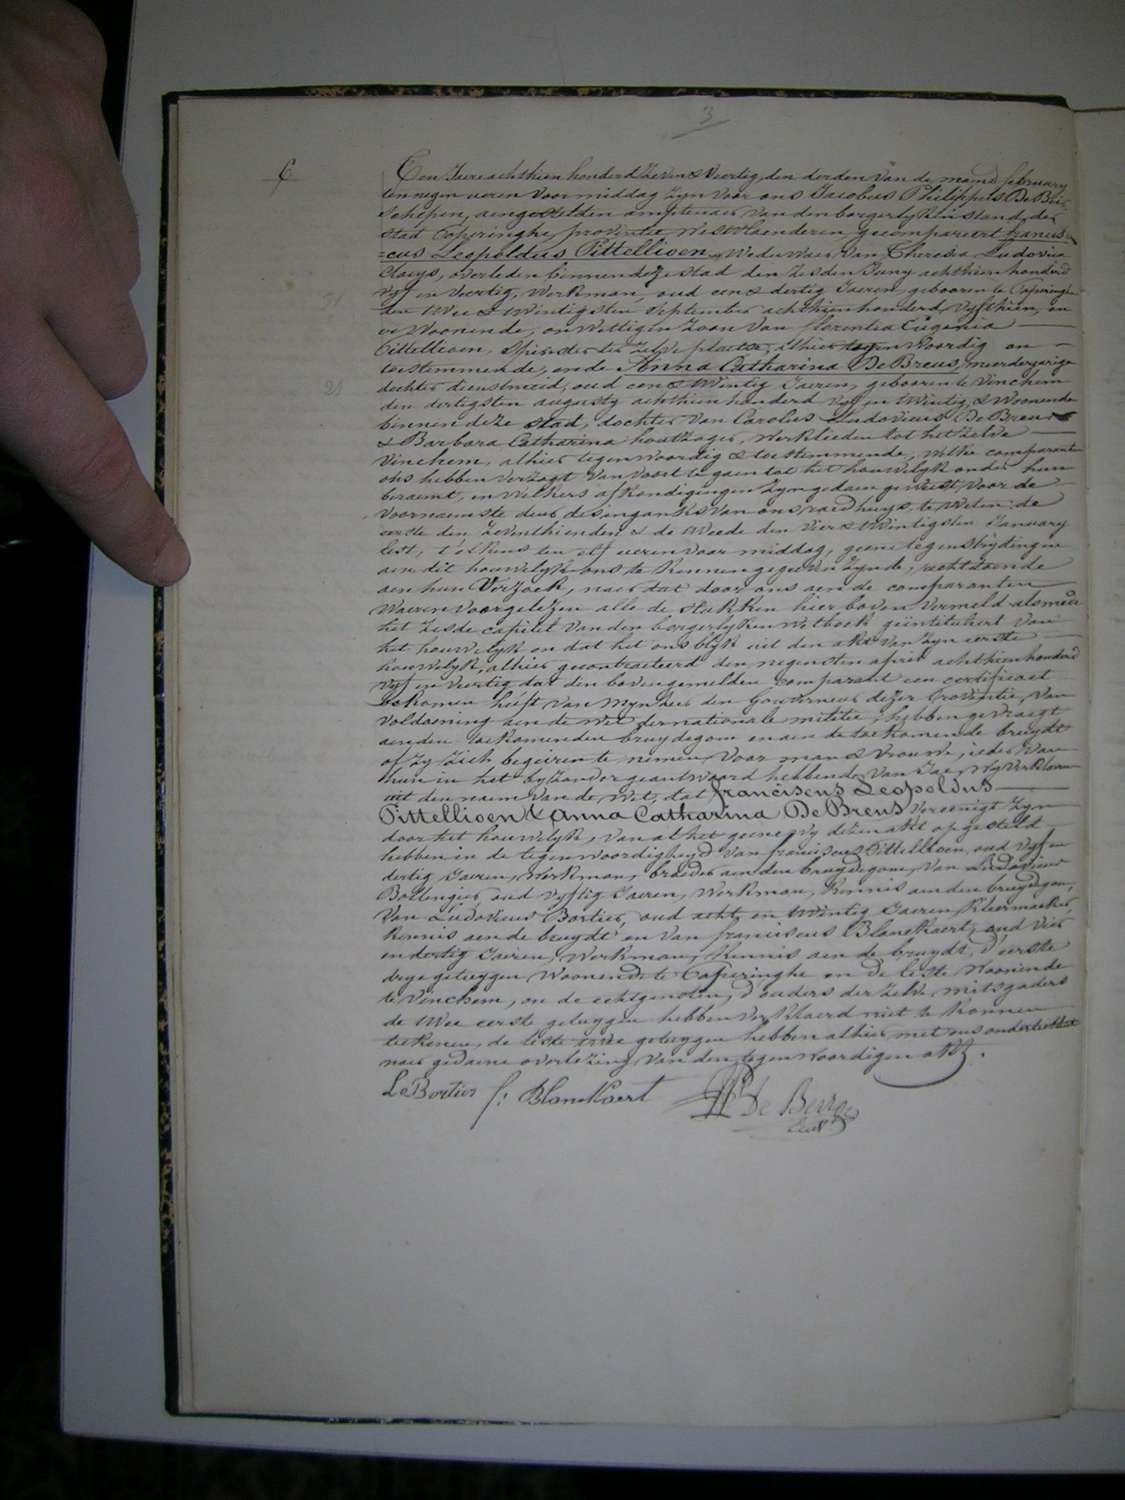 3
6
Den Jaere achthien honderd Zeven & Veertig, den derden van de maend february
ten negen ueren voormiddag zyn voor ons Jacobus Philippus De Ber-
Schepen, aengestelden amptenaer van den borgerlyken stand der
stad Poperinghe, provintie Westvlaenderen, gecompareert francis-
=cus Leopoldus Pittellioen, Weduwaer van Theresia Ludovica
Claeys, overleden binnen deze stad den zesden Juny achthien honderd
vyf en veertig, Werkman, oud een & dertig Jaeren, gebooren te Poperinghe
den twee & twintigsten September achthien honderd vyfthien, en
er Woonende, onwettigen zoon van florentia Eugenia
31
Pittellioen, Spinster ter zelve plaetse, alhier tegenwoordig en
toestemmende, en de Anna Catharina De Breus, meerderjarige
21
dochter dienstmeid, oud een & twintig Jaeren, gebooren te Vinchem
den dertigsten augusty achthien honderd vyf en twintig, & Woonende
binnen deze stad, dochter van Carolus Ludovicus De Breus
& Barbara Catharina houtzager, Werklieden tot het zelve
Vinchem, alhier tegenwoordig & toestemmende, welke comparanten
ons hebben verzogt van voort te gaen tot het houwelyk onder hun
beraemt, en welkers afkondigingen zyn gedaen geweest voor de
voornaemste deur des ingangks van ons raedhuys, te weten: de
eerste den zeventhienden & de tweede den vier & twintigsten January
lest, telkens ten elf ueren voor middag, geene tegenstrydingen
aen dit houwelyk ons te kennen gegeven zynde, rechtdoende
aen hun verzoek, naer dat door ons aen de comparanten
waeren voorgelezen alle de stukken hier boven vermeld alsmede
het zesde capitel van den borgerlyken Wetboek geintituleert van
het houwelyk en dat het ons blykt uit den akt van zyn eerste
houwelyk, alhier gecontracteerd den negensten april achthien honderd
vyf en veertig dat den bovengemelden comparant een certificaet
bekomen heeft van Mynheer den Gouverneur dezer Provintie, van
voldoening aen de Wet der nationale militie, hebben gevraegt
aen den toekomenden bruydegom en aen de toekomende bruydt
of zy zich begeiren te nemen voor man & vrouwe, ieder van
hun in het byzonder geantwoord hebbende van Jae, Wy verklaeren
uit den naem van de Wet, dat franciscus Leopoldus
Pittellioen & Anna Catharina De Breus vereenigt zyn
door het houwelyk, van al het geene wy dezen akt opgesteld
hebben in de tegenwoordigheyd van franciscus Pittellioen, oud vyf en
dertig Jaeren, Werkman, broeder aen den bruydegom, van Ludovicus
Bollengier, oud vyftig Jaeren, Werkman, kennis aen den bruydegom,
van Ludovicus Bortier, oud acht en twintig Jaeren, kleermaeker,
kennis aen de bruydt en van franciscus Blanckaert, oud vier
en dertig Jaeren, Werkman, kennis aen de bruydt, d'eerste
drye getuygen woonende te Poperinghe en de leste woonende
te Vinchem, en de echtgenoten, d'ouders der zelve mitsgaders
de twee eerste getuygen hebben verklaerd niet te konnen
teekenen, de leste twee getuygen hebben alhier met ons onderteekent
naer gedaene overlezing van den tegenwoordigen akt.
L Bortier f: Blanckaert JP De Berge